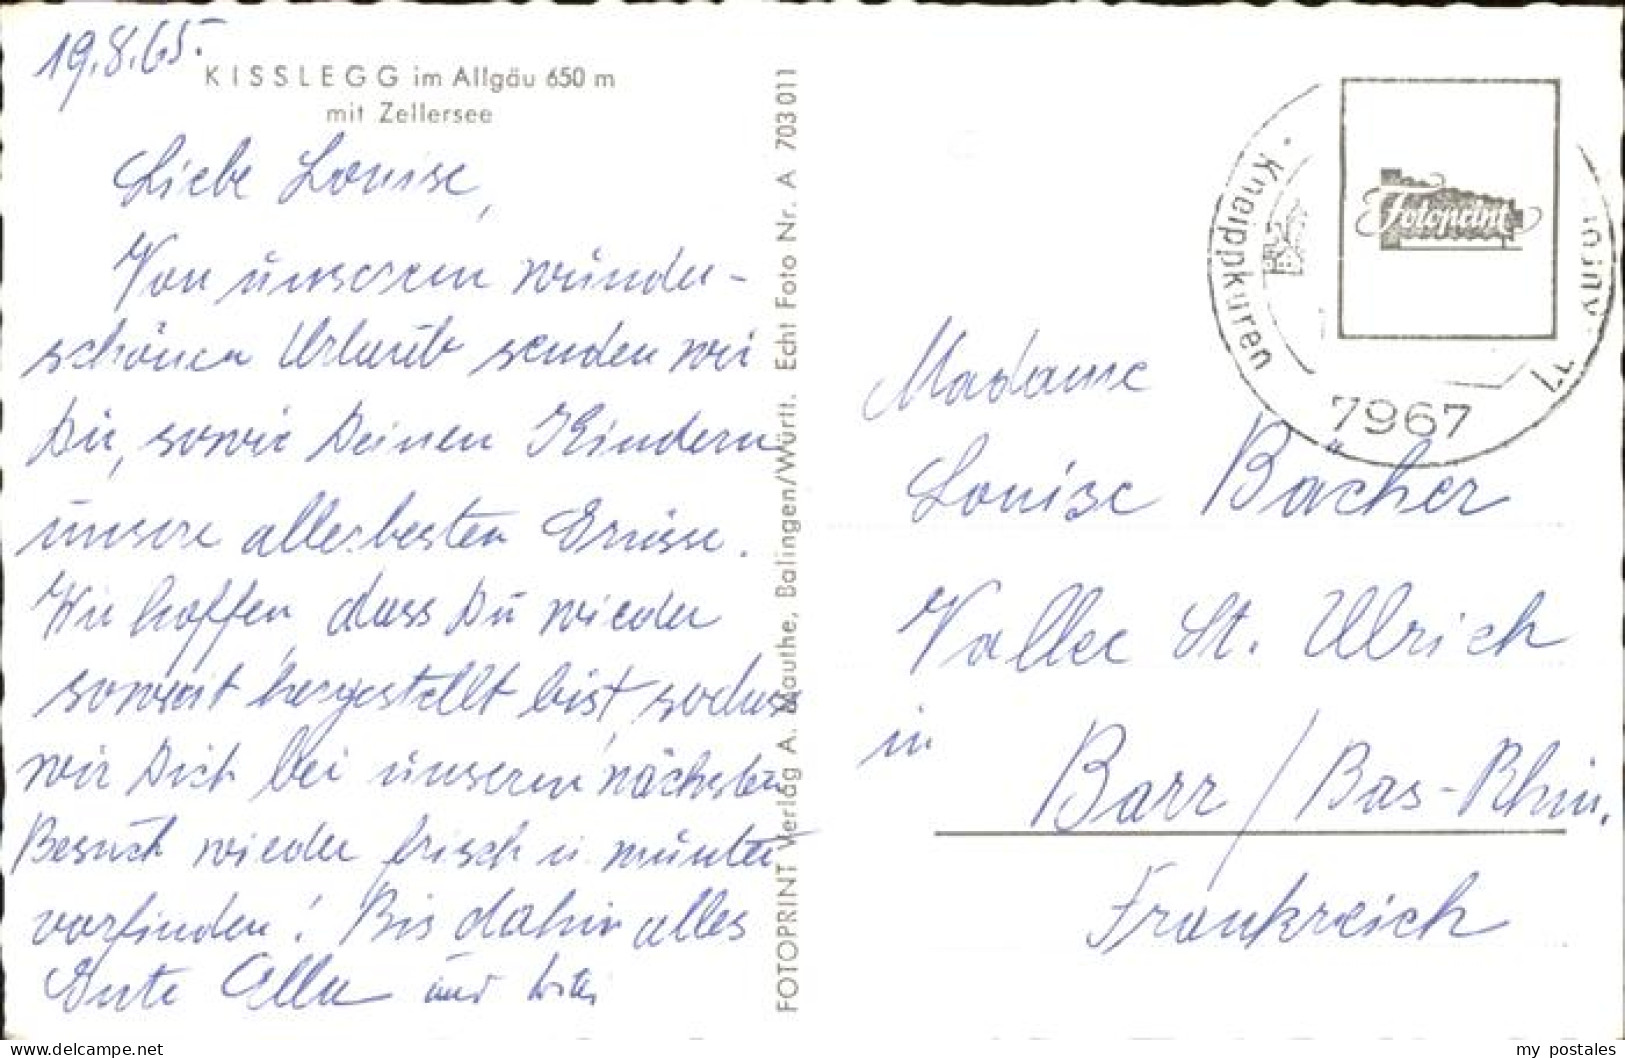 19.8.65.
KISSLEGG im Allgäu 650 m
mit Zellersee
Liebe Louise,
Von unserem wunder-
schönen Urlaub senden wir
Dir, sowie Deinen Kindern
unsere allerbesten Grüsse.
Wir hoffen, dass Du wieder
soweit hergestellt bist, sodass
wir Dich bei unserem nächsten
Besuch wieder frisch u. munter
vorfinden! Bis dahin alles
Gute Ella und
FOTOPRINT Verlag A. Mauthe, Balingen/Württ. Echt Foto Nr. A 703 011
Kneippkuren
7967
Fotoprint
Madame
Louise Bächer
Vallee St. Ulrich
in
Barr / Bas-Rhin.
Frankreich
delcampe.net
my_postales